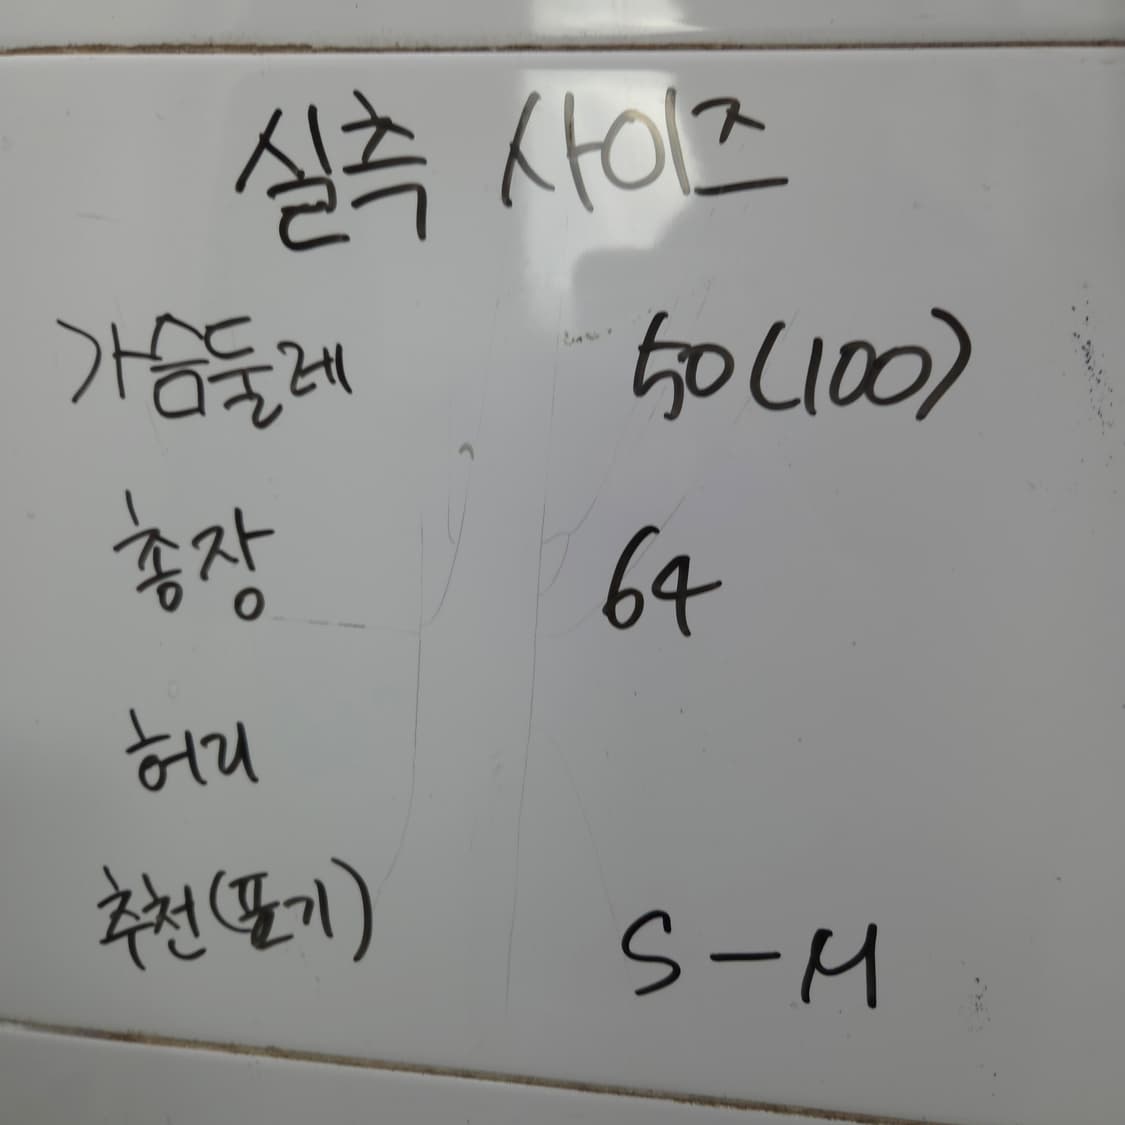 실측 사이즈
가슴둘레 50(100)
총장 64
허리
추천(표기) S-M